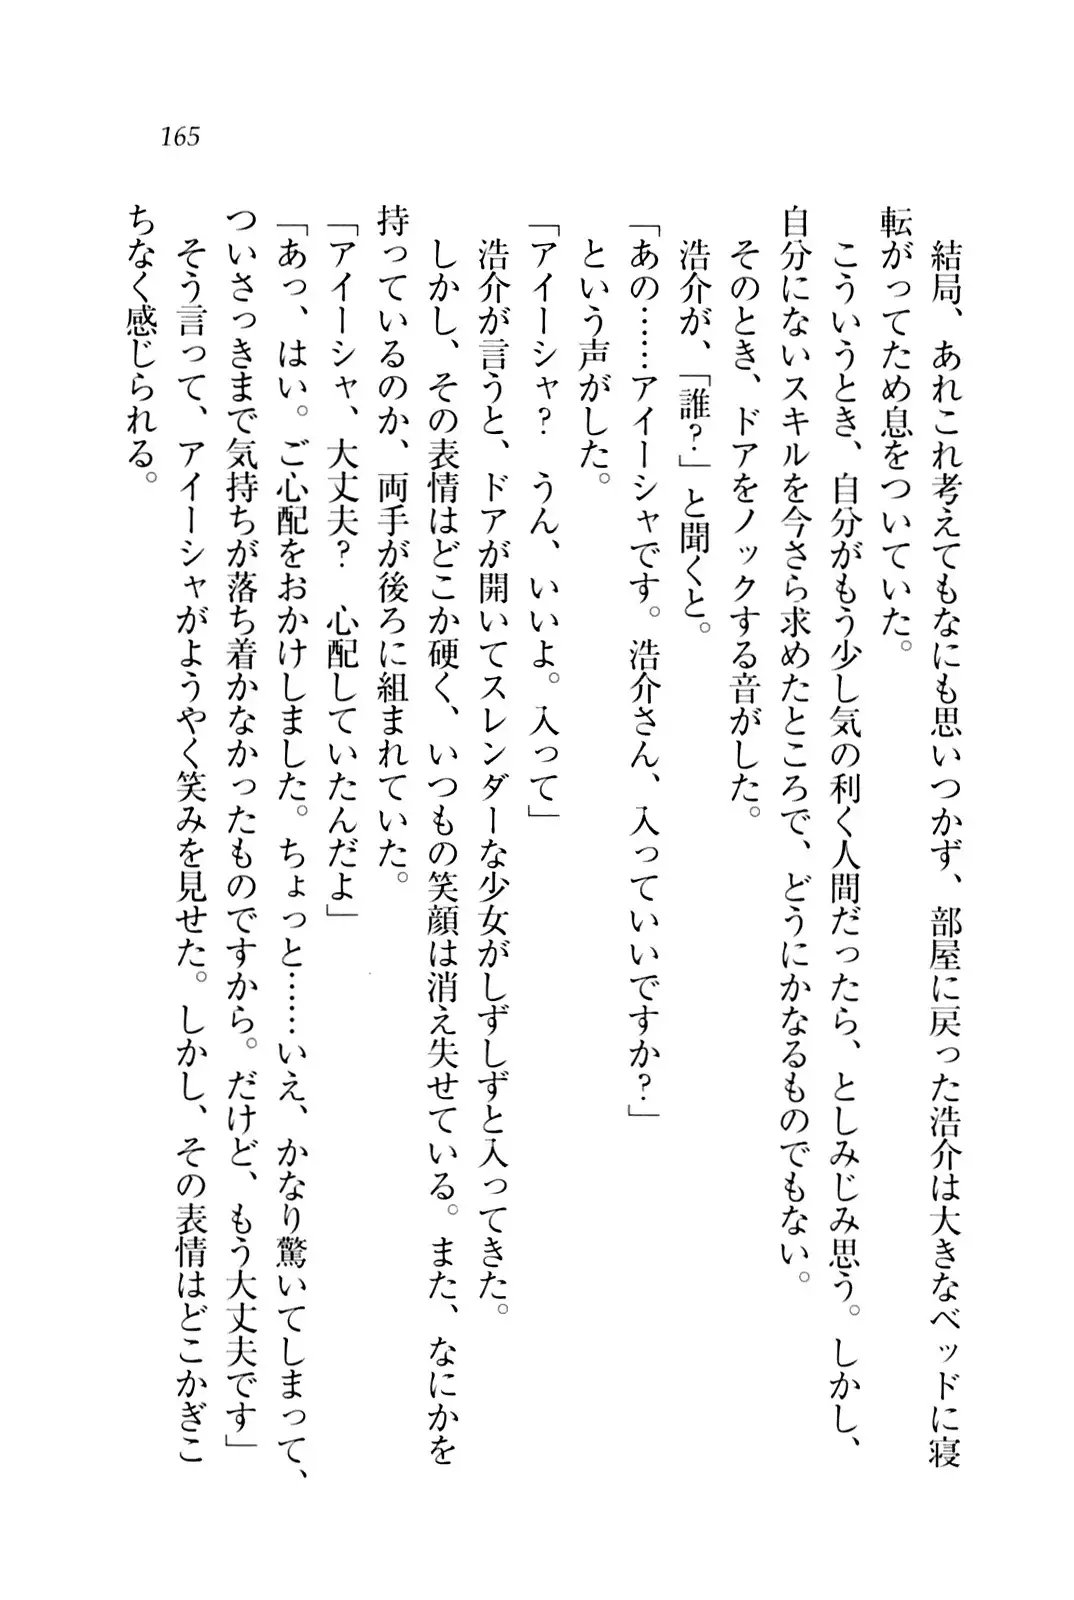 165
　結局、あれこれ考えてもなにも思いつかず、部屋に戻った浩介は大きなベッドに寝
転がってため息をついていた。
　こういうとき、自分がもう少し気の利く人間だったら、としみじみ思う。しかし、
自分にないスキルを今さら求めたところで、どうにかなるものでもない。
　そのとき、ドアをノックする音がした。
　浩介が、「誰？」と聞くと。
「あの……アイーシャです。浩介さん、入っていいですか？」
　という声がした。
「アイーシャ？　うん、いいよ。入って」
　浩介が言うと、ドアが開いてスレンダーな少女がしずしずと入ってきた。
　しかし、その表情はどこか硬く、いつもの笑顔は消え失せている。また、なにかを
持っているのか、両手が後ろに組まれていた。
「アイーシャ、大丈夫？　心配していたんだよ」
「あっ、はい。ご心配をおかけしました。ちょっと……いえ、かなり驚いてしまって、
ついさっきまで気持ちが落ち着かなかったものですから。だけど、もう大丈夫です」
　そう言って、アイーシャがようやく笑みを見せた。しかし、その表情はどこかぎこ
ちなく感じられる。